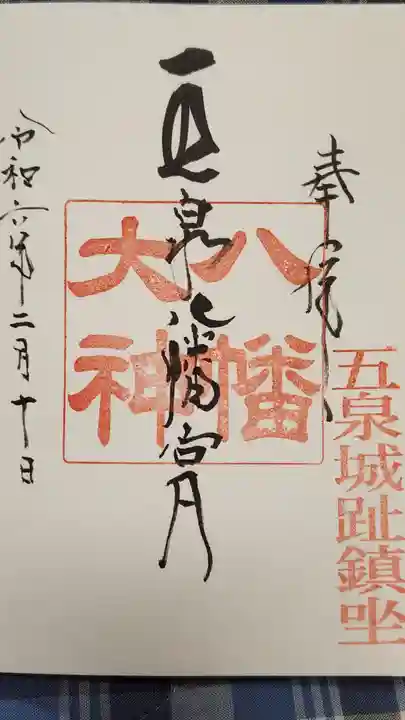 奉拝
五泉城趾鎮坐
五泉八幡宮
八幡
大神
令和六年二月十日